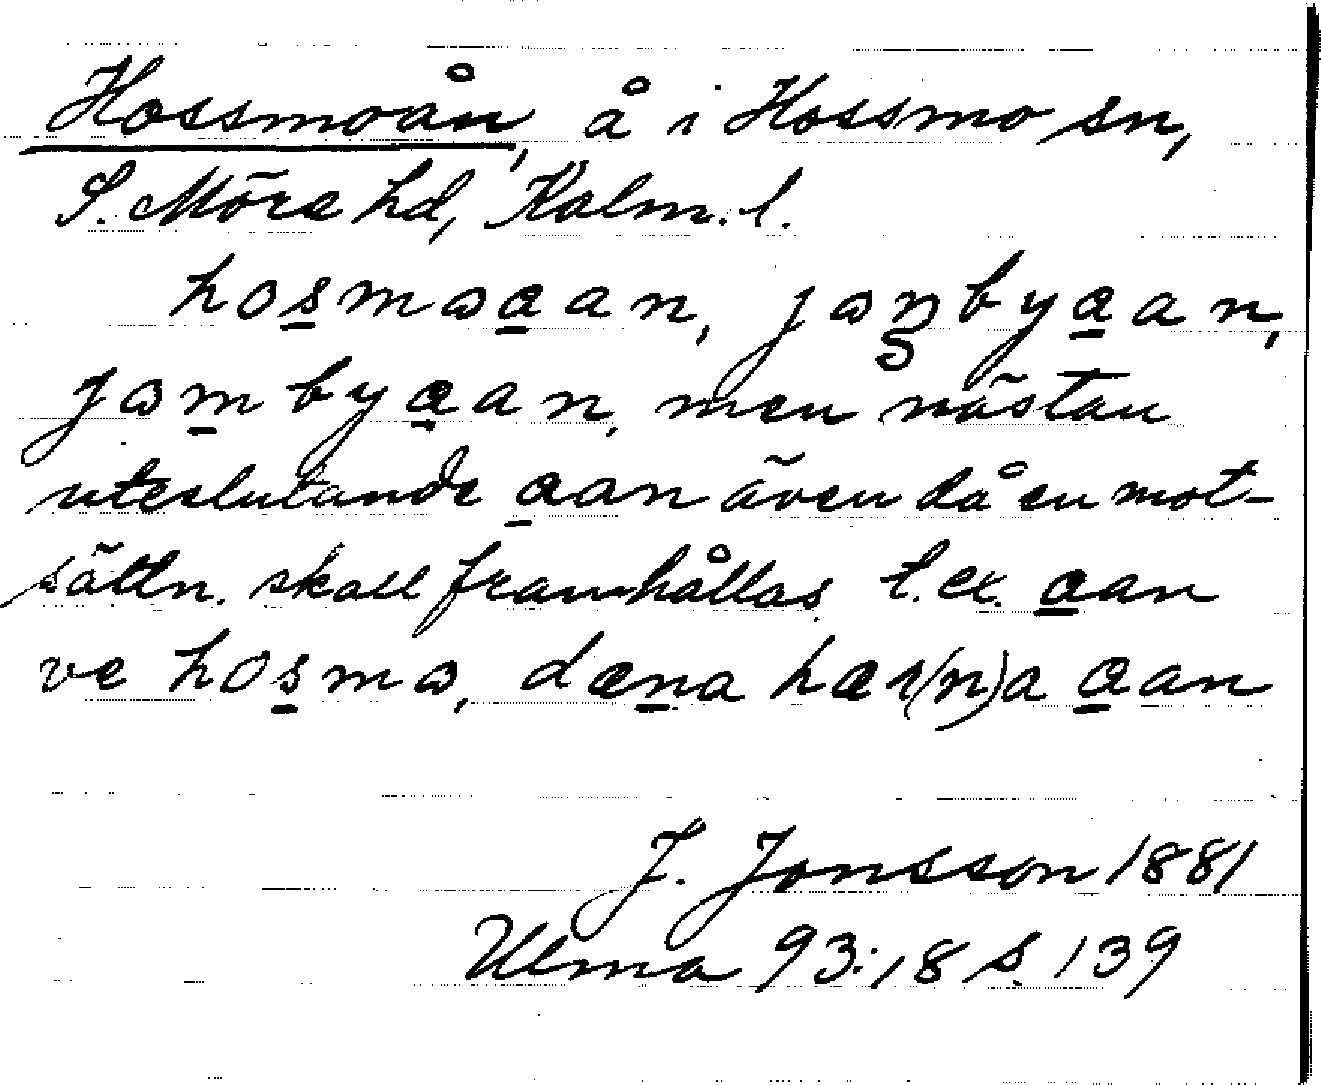 Hossmoån, å i Hossmo sn,
S. Möre hd, Kalm. l.
hosmωaan, jωnbyaan,
jωmbyaan, men nästan
uteslutande aan även då en mot-
sättn. skall framhållas t. ex. aan
ve hosmω, dæna hær(n)a aan
J. Jonsson 1881
Ulma 93:18 s. 139